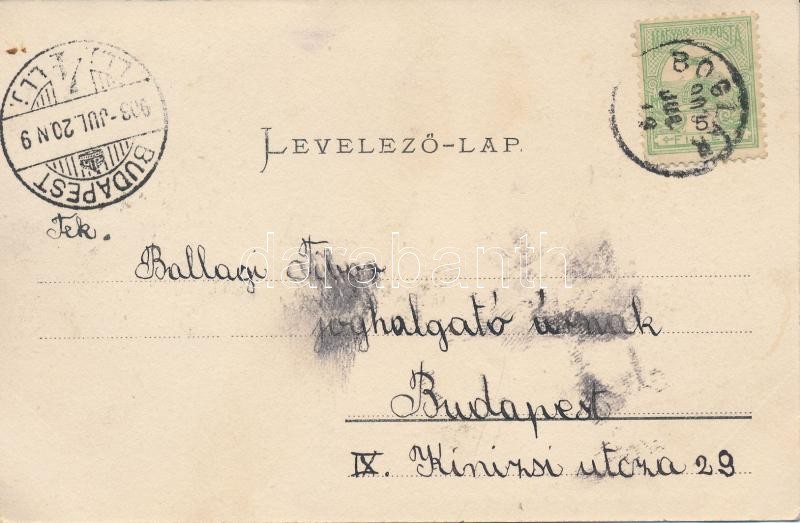 MAGYAR KIR. POSTA
BOGLÁR
903 JUL. 20 N 9
BUDAPEST
LEVELEZŐ-LAP.
Tek.
Ballagi Tibor
joghalgató úrnak
Budapest
IX. Kinizsi utcza 29
darabanth